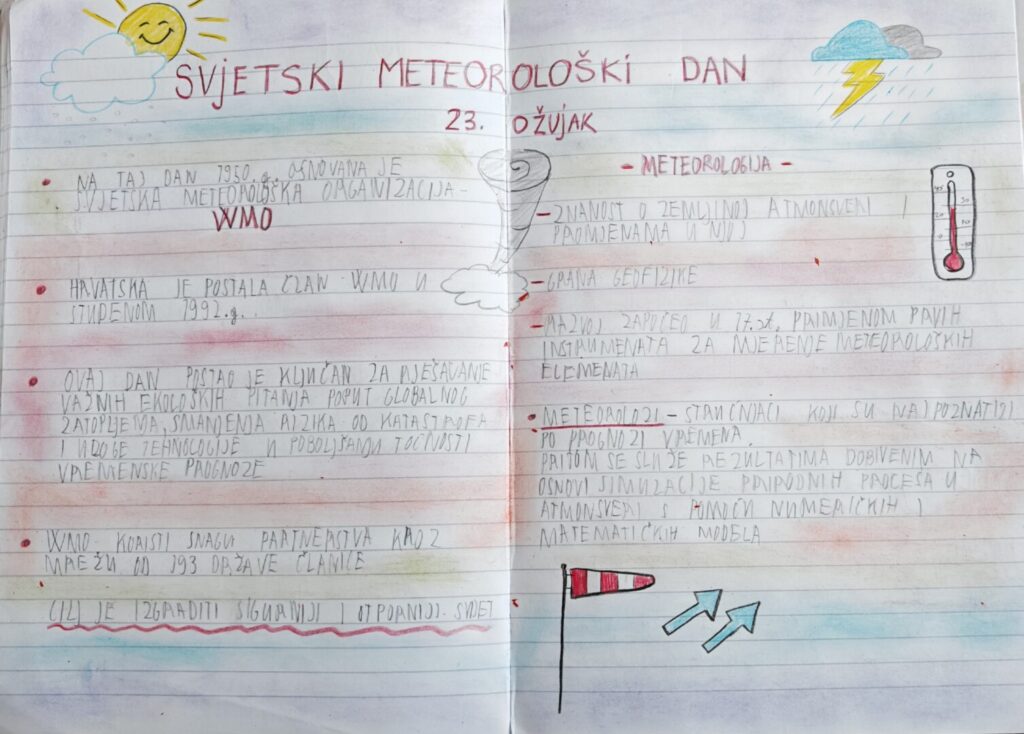 SVJETSKI METEOROLOŠKI DAN
23. OŽUJAK
NA TAJ DAN 1950.g. OSNOVANA JE
SVJETSKA METEOROLOŠKA ORGANIZACIJA -
WMO
HRVATSKA JE POSTALA ČLAN WMO U
STUDENOM 1992.g.
OVAJ DAN POSTAO JE KLJUČAN ZA RJEŠAVANJE
VAŽNIH EKOLOŠKIH PITANJA POPUT GLOBALNOG
ZATOPLJENJA, SMANJENJA RIZIKA OD KATASTROFA
I ULOGE TEHNOLOGIJE U POBOLJŠANJU TOČNOSTI
VREMENSKE PROGNOZE
WMO - KORISTI SNAGU PARTNERSTVA KROZ
MREŽU OD 193 DRŽAVE ČLANICE
CILJ JE IZGRADITI SIGURNIJI I OTPORNIJI SVIJET
- METEOROLOGIJA -
- ZNANOST O ZEMLJINOJ ATMONSVERI I
PROMJENAMA U NJOJ
- GRANA GEOFIZIKE
- RAZVOJ ZAPOČEO U 17.st. PRIMJENOM PRVIH
INSTRUMENATA ZA MJERENJE METEOROLOŠKIH
ELEMENATA
METEOROLOZI - STRUČNJACI KOJI SU NAJPOZNATIJI
PO PROGNOZI VREMENA.
PRITOM SE SLUŽE REZULTATIMA DOBIVENIM NA
OSNOVI SIMULACIJE PRIRODNIH PROCESA U
ATMONSVERI S POMOĆU NUMERIČKIH I
MATEMATIČKIH MODELA